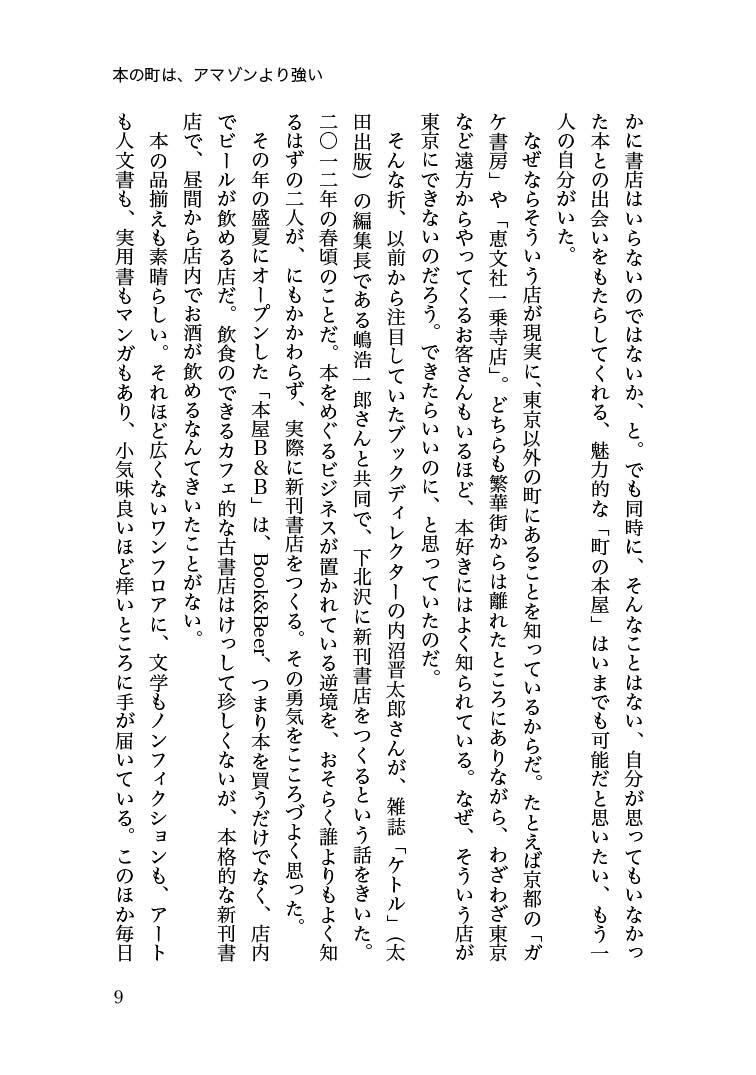 本の町は、アマゾンより強い
かに書店はいらないのではないか、と。でも同時に、そんなことはない、自分が思ってもいなかっ
た本との出会いをもたらしてくれる、魅力的な「町の本屋」はいまでも可能だと思いたい、もう一
人の自分がいた。
なぜならそういう店が現実に、東京以外の町にあることを知っているからだ。たとえば京都の「ガ
ケ書房」や「恵文社一乗寺店」。どちらも繁華街からは離れたところにありながら、わざわざ東京
など遠方からやってくるお客さんもいるほど、本好きにはよく知られている。なぜ、そういう店が
東京にできないのだろう。できたらいいのに、と思っていたのだ。
そんな折、以前から注目していたブックディレクターの内沼晋太郎さんが、雑誌「ケトル」（太
田出版）の編集長である嶋浩一郎さんと共同で、下北沢に新刊書店をつくるという話をきいた。
二〇一二年の春頃のことだ。本をめぐるビジネスが置かれている逆境を、おそらく誰よりもよく知
るはずの二人が、にもかかわらず、実際に新刊書店をつくる。その勇気をこころづよく思った。
その年の盛夏にオープンした「本屋B&B」は、Book&Beer、つまり本を買うだけでなく、店内
でビールが飲める店だ。飲食のできるカフェ的な古書店はけっして珍しくないが、本格的な新刊書
店で、昼間から店内でお酒が飲めるなんてきいたことがない。
本の品揃えも素晴らしい。それほど広くないワンフロアに、文学もノンフィクションも、アート
も人文書も、実用書もマンガもあり、小気味良いほど痒いところに手が届いている。このほか毎日
9